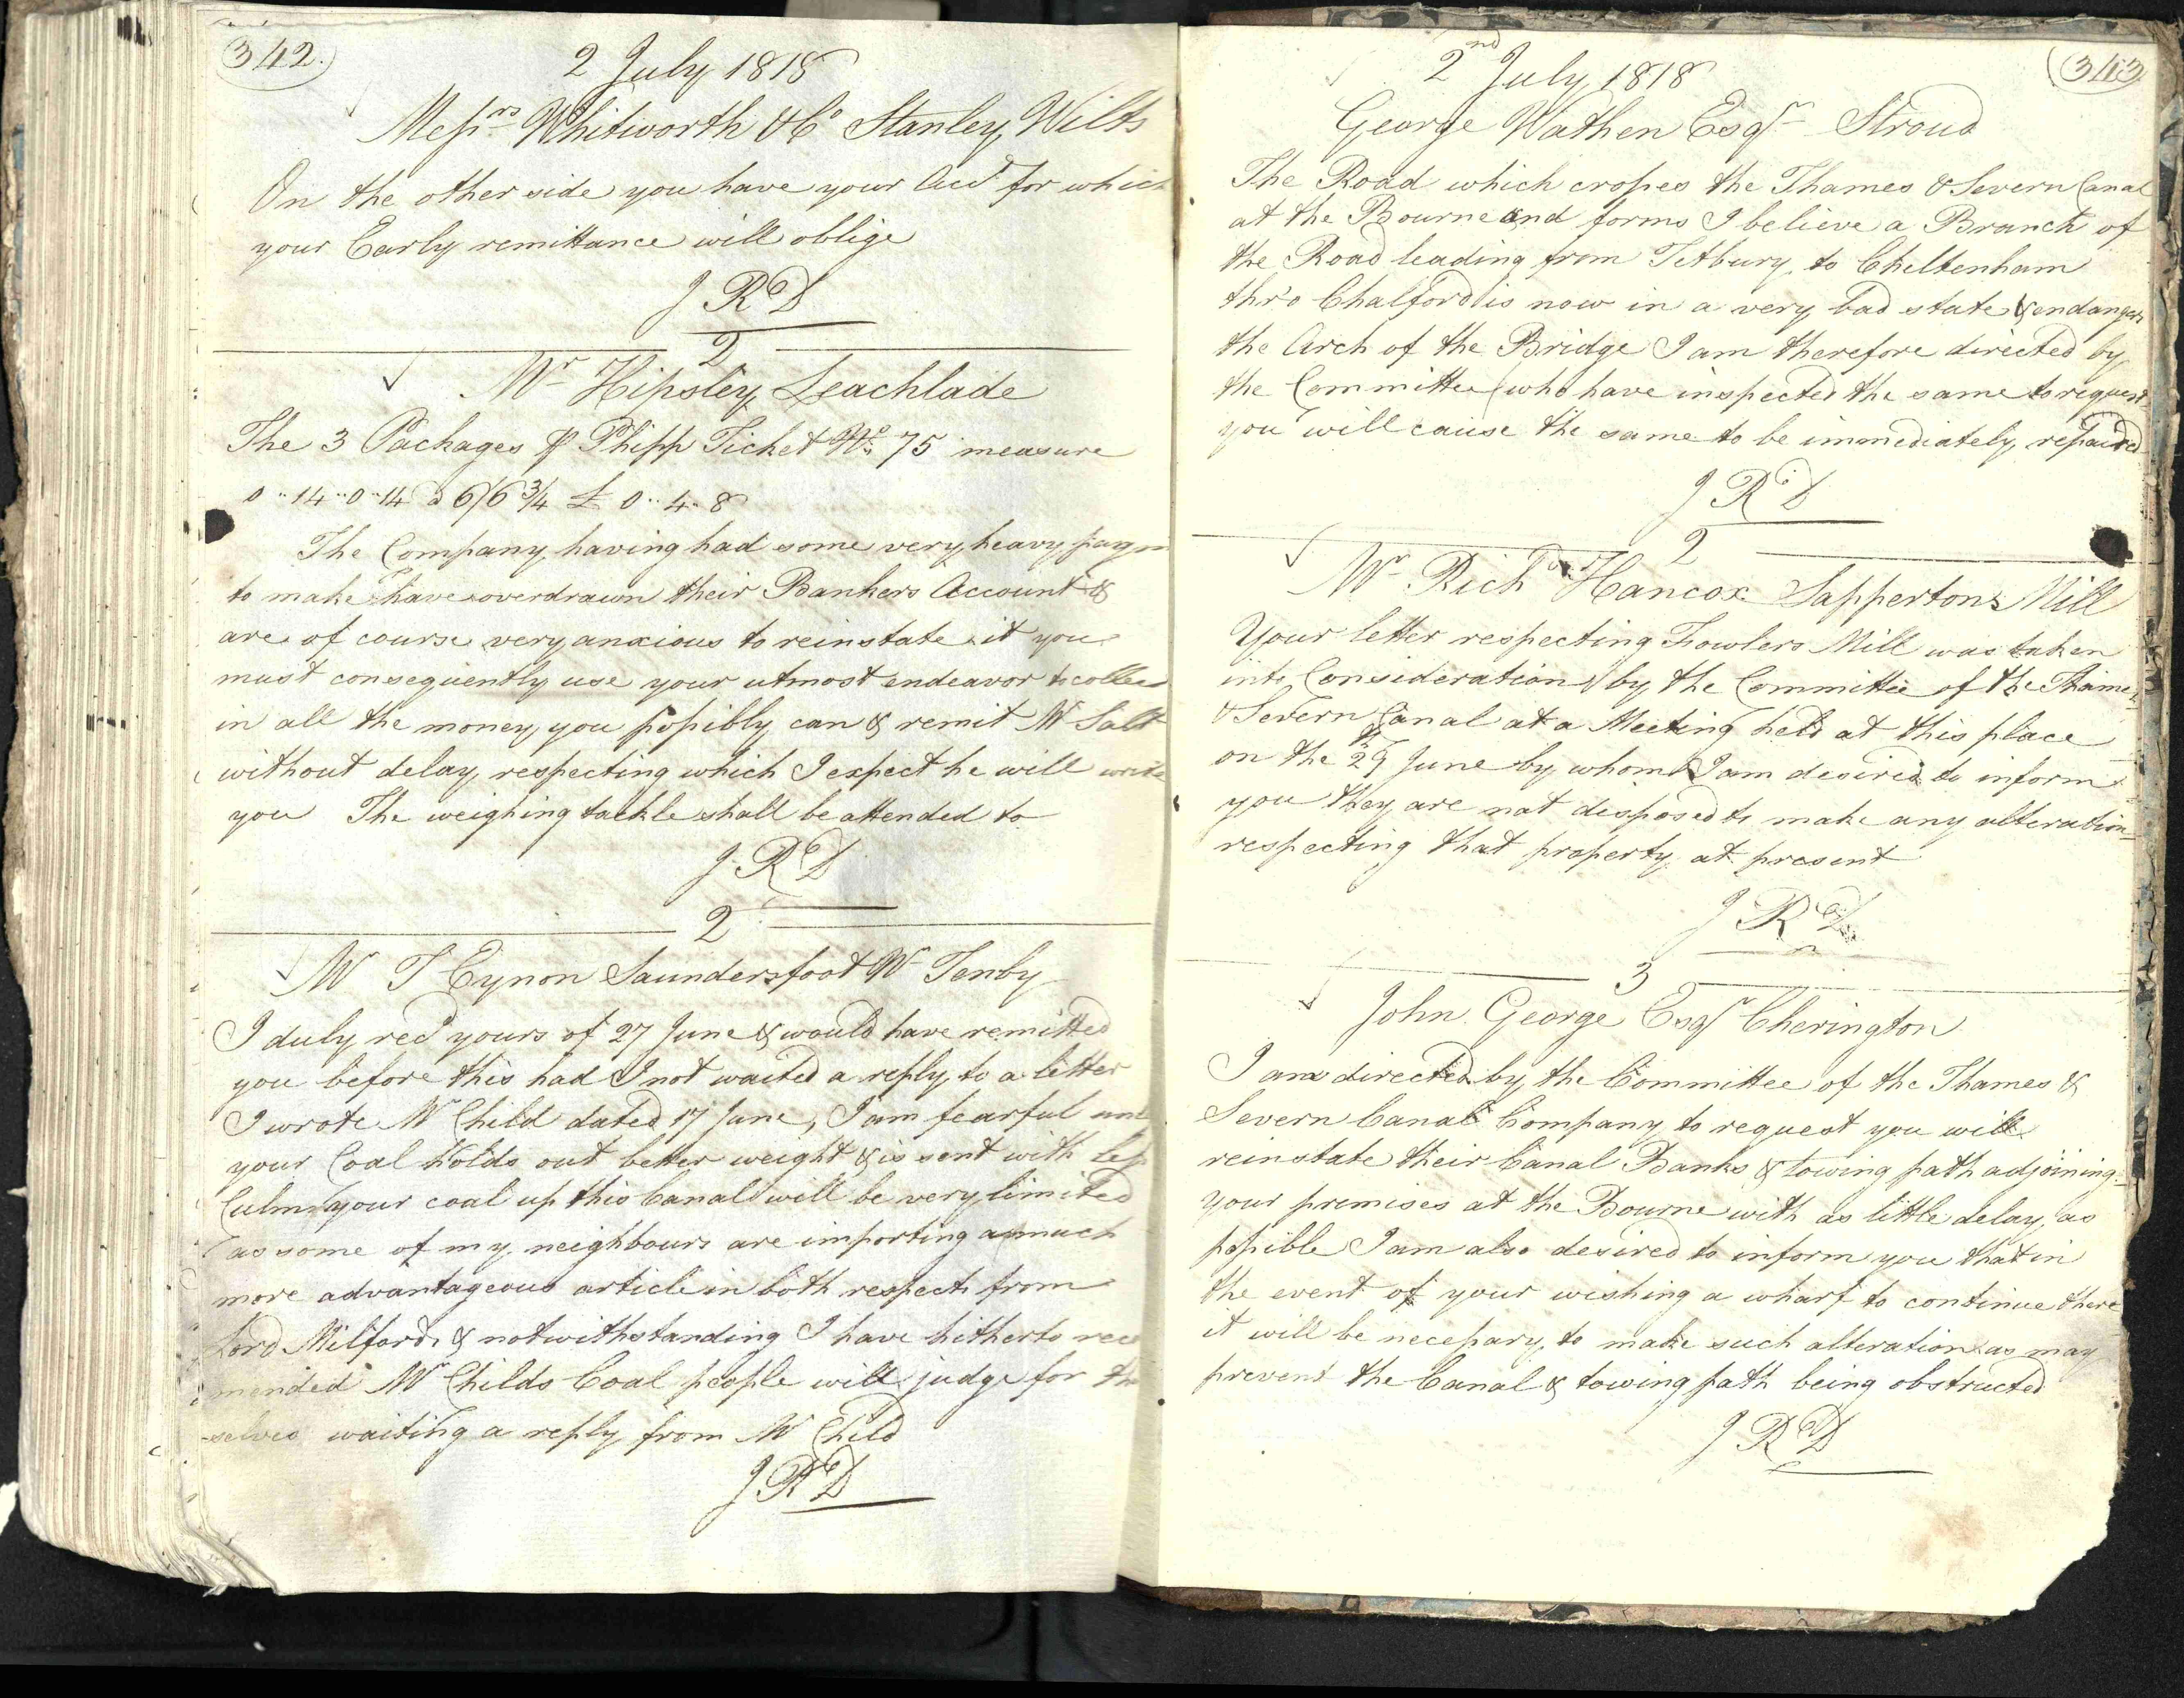 342.
2 July 1818
Messrs Whitworth & Co Stanley Wilts
On the other side you have your Accot for which
your Early remittance will oblige
J R D
2
Mr Hipsley Leachlade
The 3 Packages ⅌ Phipp Ticket No 75 measure
0..14..0..14 a 6/6 3/4 £ 0..4..8
The Company having had some very heavy paym
to make have overdrawn their Bankers Account &
are of course very anxious to reinstate it you
must consequently use your utmost endeavor to collec
in all the money you possibly can & remit Mr Salt
without delay respecting which I expect he will write
you The weighing tackle shall be attended to
J R D
2
Mr T Eynon Saundersfoot Nr Tenby
I duly recd yours of 27 June & would have remitted
you before this had I not waited a reply to a letter
I wrote Mr Child dated 17 June, I am fearful unl
your Coal holds out better weight & is sent with less
Culm your coal up this Canal will be very limited
as some of my neighbours are importing a much
more advantageous article in both respects from
Lord Milfords & notwithstanding I have hitherto recom
mended Mr Childs Coal people will judge for them
-selves waiting a reply from Mr Child
J R D
343
2nd July 1818
George Wathen Esqr Stroud
The Road which crosses the Thames & Severn Canal
at the Bourne and forms I believe a Branch of
the Road leading from Tetbury to Cheltenham
thro' Chalford is now in a very bad state & endangers
the Arch of the Bridge I am therefore directed by
the Committee (who have inspected the same to request
you will cause the same to be immediately repaired
J R D
2
Mr Richd Hancox Sappertons Mill
Your letter respecting Fowlers Mill was taken
into Consideration by the Committee of the Thames
& Severn Canal at a Meeting held at this place
on the 29th June by whom I am desired to inform
you they are not disposed to make any alteration
respecting that property at present
J R D
3
John George Esqr Cherington
I am directed by the Committee of the Thames &
Severn Canal Company to request you will
reinstate their Canal Banks & towing path adjoining
your premises at the Bourne with as little delay as
possible I am also desired to inform you that in
the event of your wishing a wharf to continue there
it will be necessary to make such alteration as may
prevent the Canal & towing path being obstructed
J R D